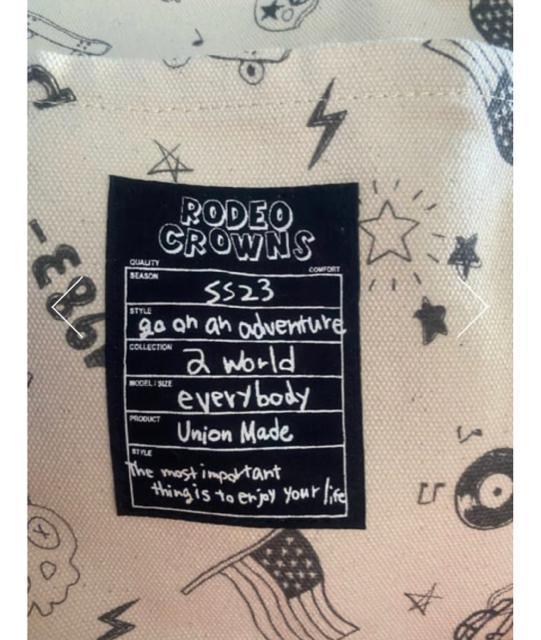 RODEO
CROWNS
QUALITY
COMFORT
SEASON
SS23
STYLE
go on an adventure
COLLECTION
2 World
MODEL / SIZE
everybody
PRODUCT
Union Made
STYLE
The most important
thing is to enjoy your life